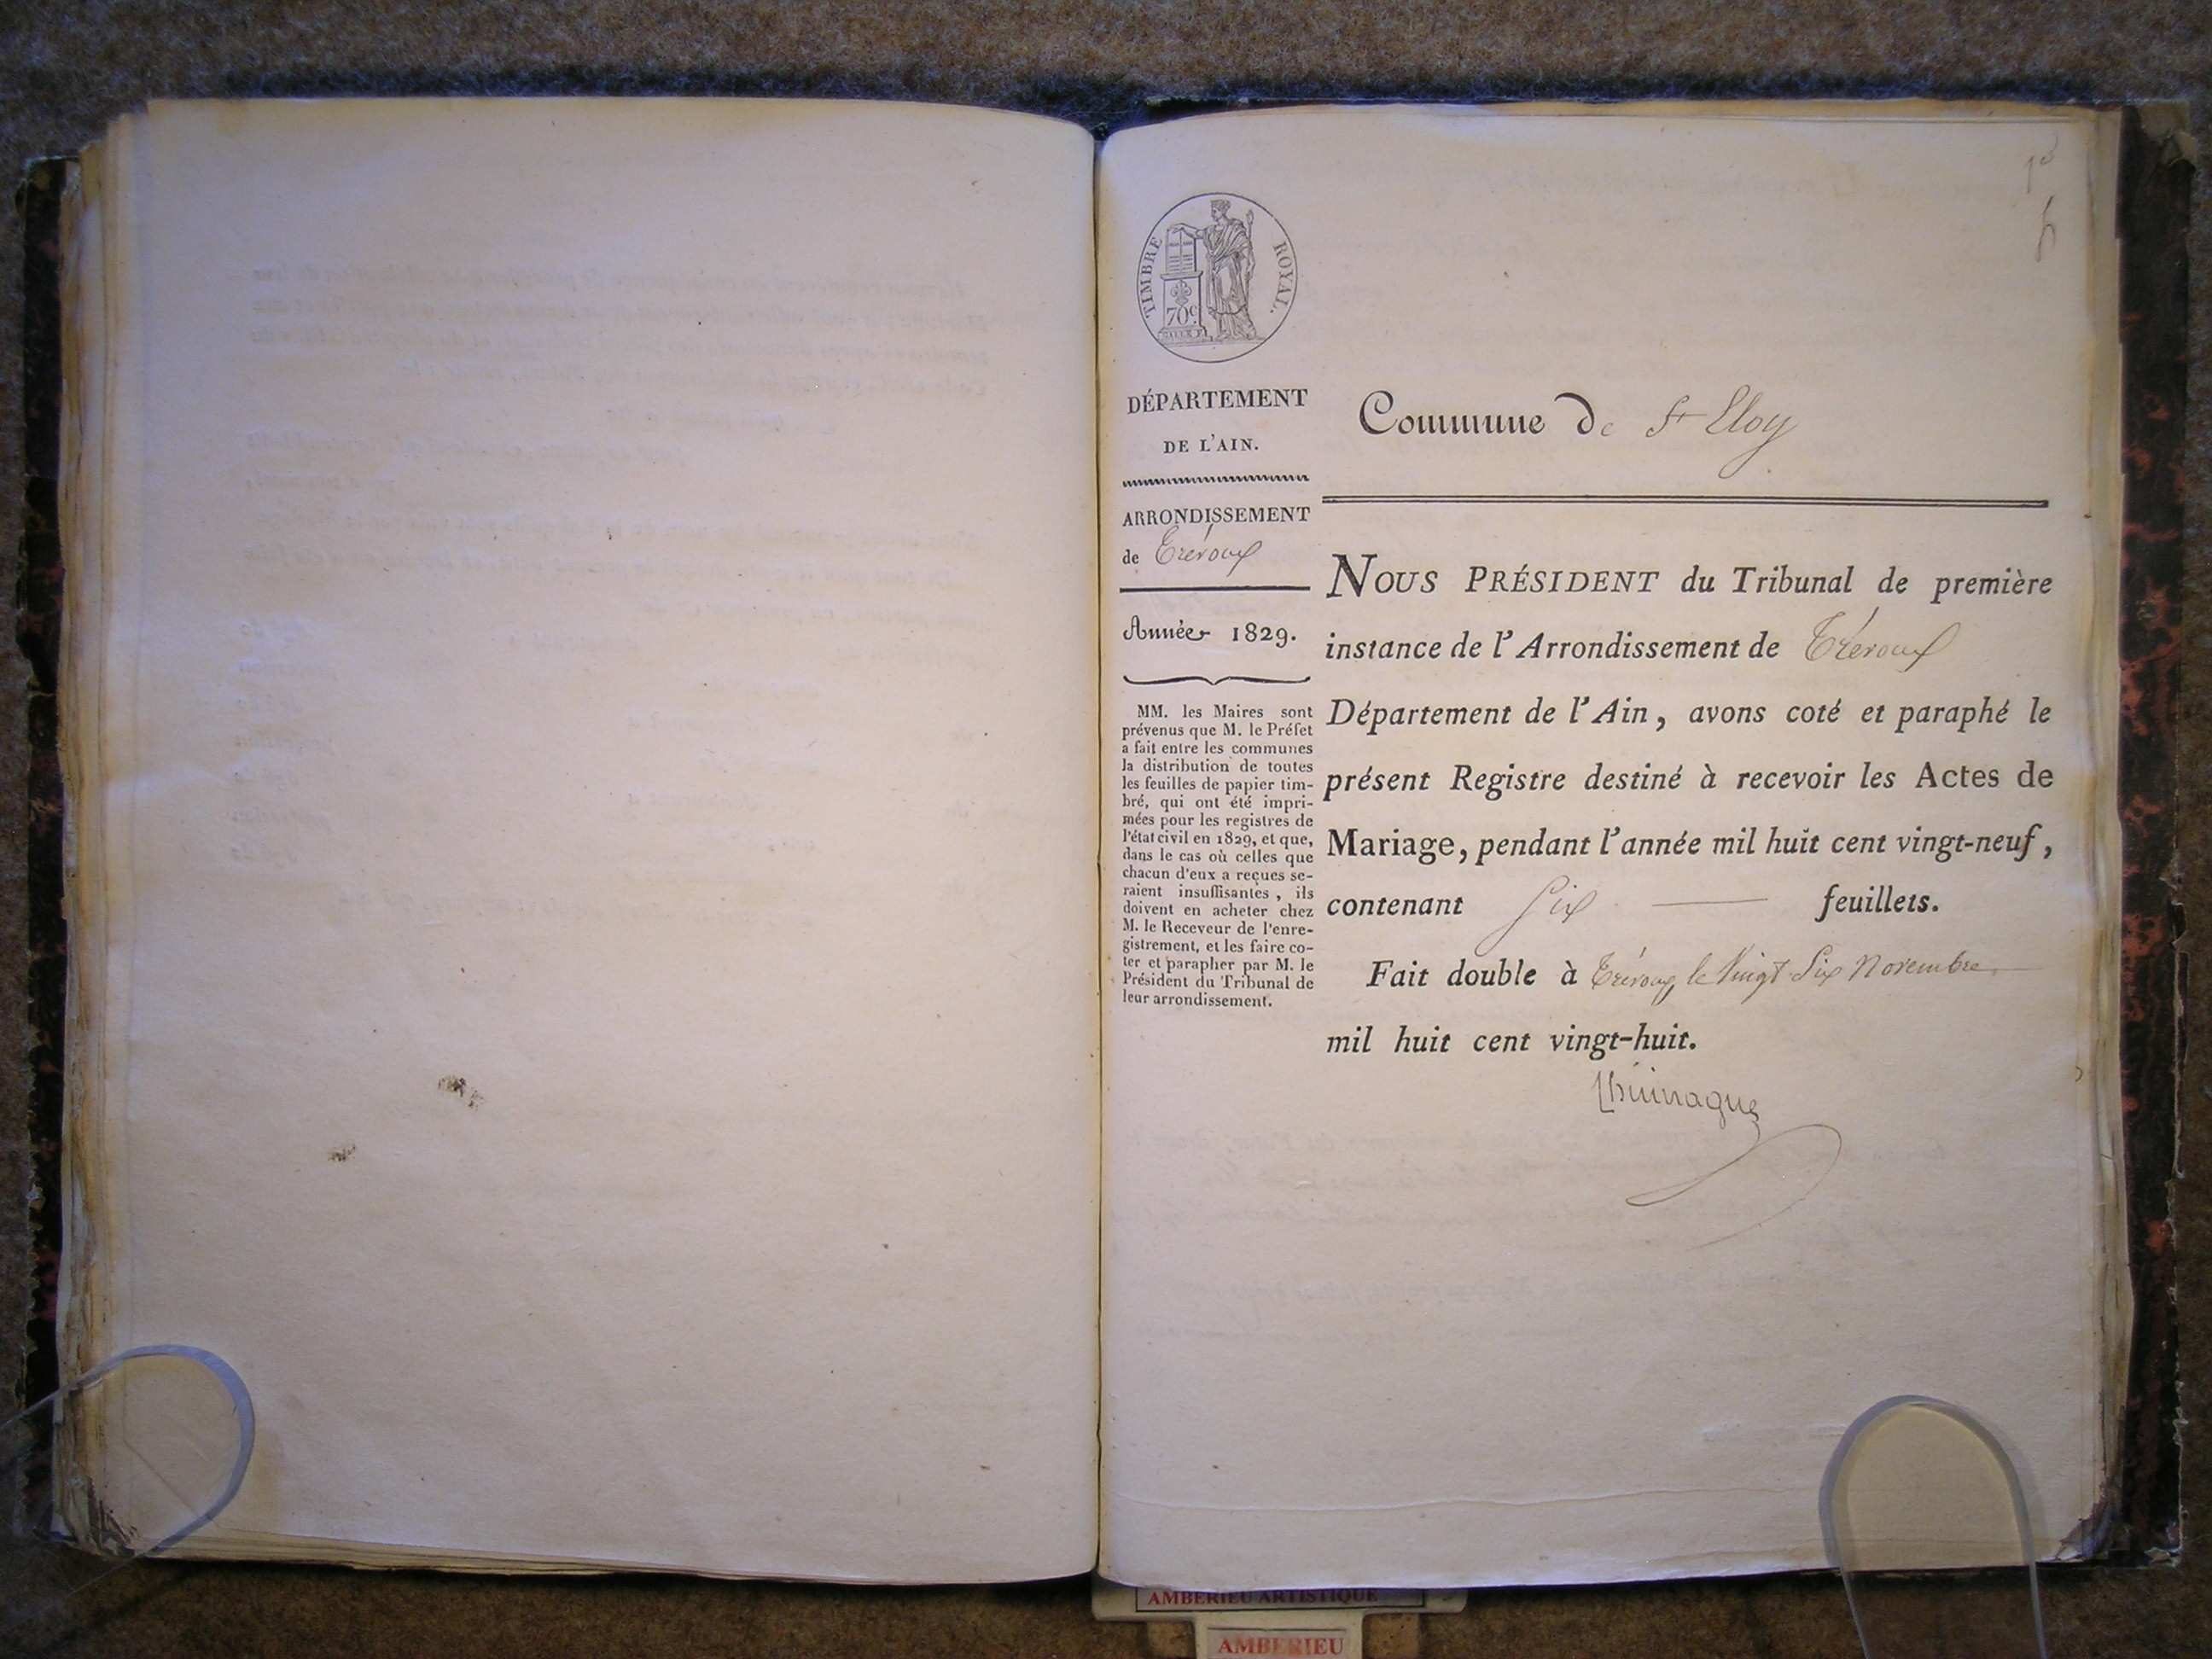 TIMBRE ROYAL.
70c
DÉPARTEMENT
DE L'AIN.
ARRONDISSEMENT
de Trévoux
Année 1829.
MM. les Maires sont
prévenus que M. le Préfet
a fait entre les communes
la distribution de toutes
les feuilles de papier tim-
bré, qui ont été impri-
mées pour les registres de
l'état civil en 1829, et que,
dans le cas où celles que
chacun d'eux a reçues se-
raient insuffisantes, ils
doivent en acheter chez
M. le Receveur de l'enre-
gistrement, et les faire co-
ter et parapher par M. le
Président du Tribunal de
leur arrondissement.
Commune de St Eloy
NOUS PRÉSIDENT du Tribunal de première
instance de l'Arrondissement de Trévoux
Département de l'Ain, avons coté et paraphé le
présent Registre destiné à recevoir les Actes de
Mariage, pendant l'année mil huit cent vingt-neuf,
contenant Six feuillets.
Fait double à Trévoux, le Vingt Six Novembre
mil huit cent vingt-huit.
AMBERIEU ARTISTIQUE
AMBERIEU